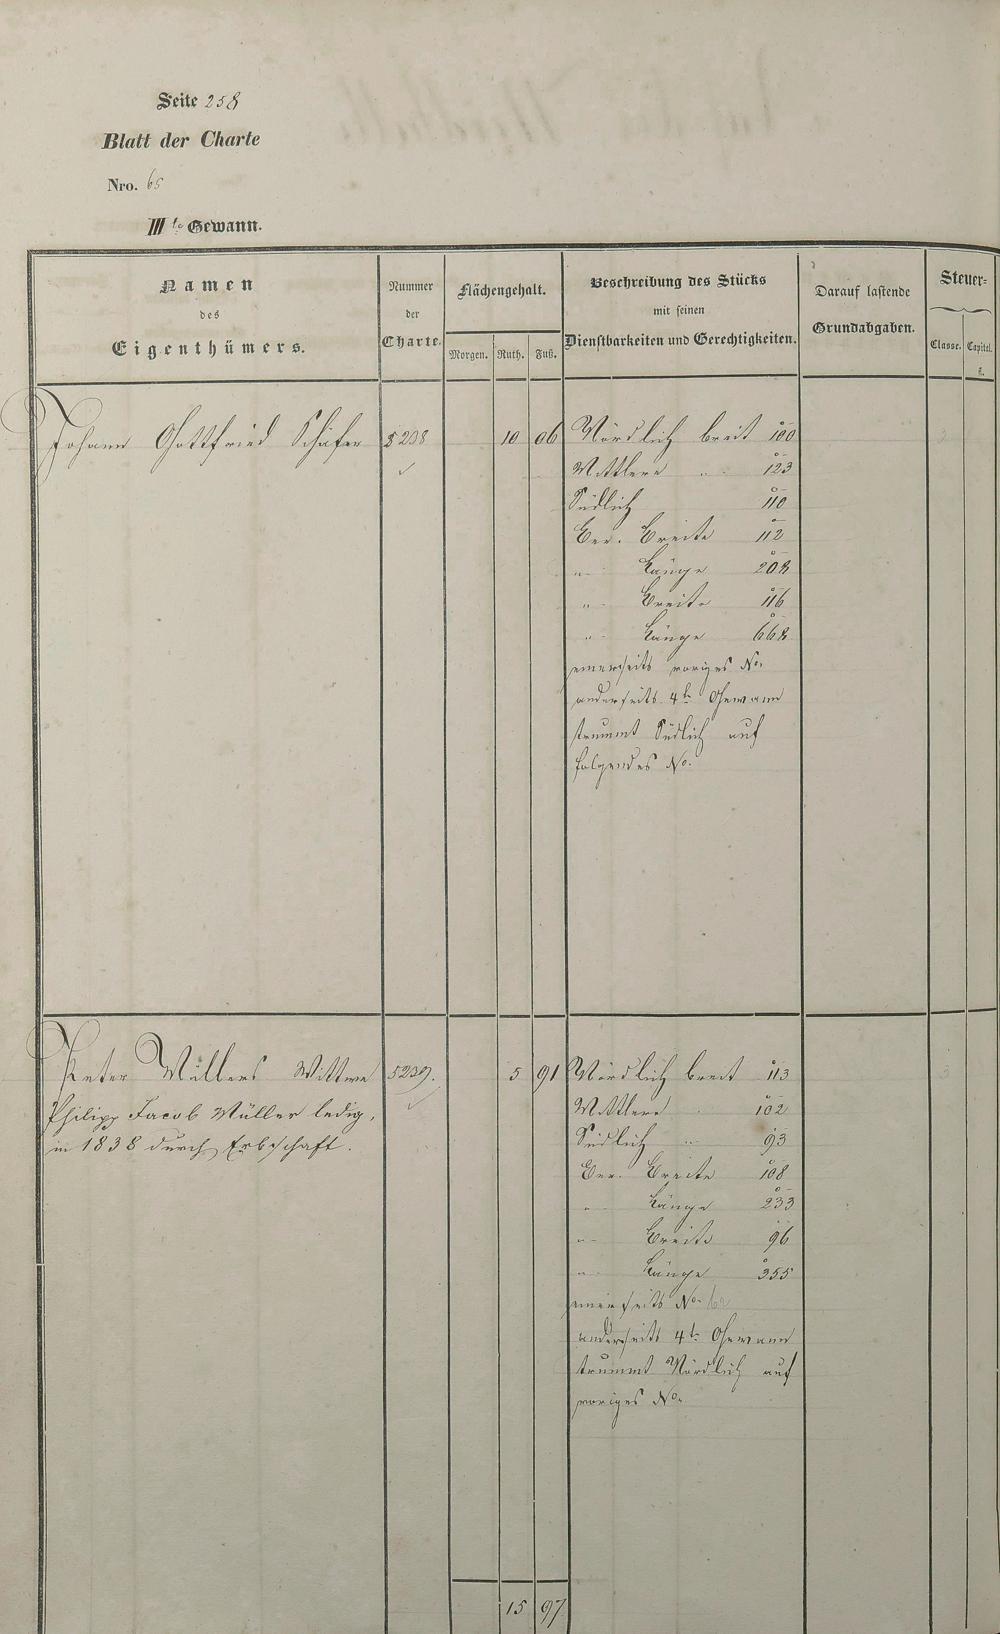 Seite 258
Blatt der Charte
Nro. 65
III te Gewann.
Namen
des
Eigenthümers.
Nummer
der
Charte.
Flächengehalt.
Morgen. Ruth. Fuß.
Beschreibung des Stücks
mit seinen
Dienstbarkeiten und Gerechtigkeiten.
Darauf lastende
Grundabgaben.
Steuer=
Classe. Capital.
fl.
Johann Gottfried Schäfer 5238 10 06 Nördlich breit 100
Mittlere " 123
Südlich 110
Ber. Breite 112
" Länge 208
" Breite 116
" Länge 668
einerseits voriges No.
anderseits 4te Gewann
Südlich auf
folgendes No.
Peter Müllers Wittwe 5239. 5 91 Nördlich breit 113
Philipp Jacob Müller ledig,
in 1838 durch Erbschaft.
Mittlere " 102
Südlich " 93
Ber. Breite 108
" Länge 233
" Breite 96
" Länge 355
einerseits No. 62
anderseits 4te Gewann
Nördlich auf
voriges No.
15 97